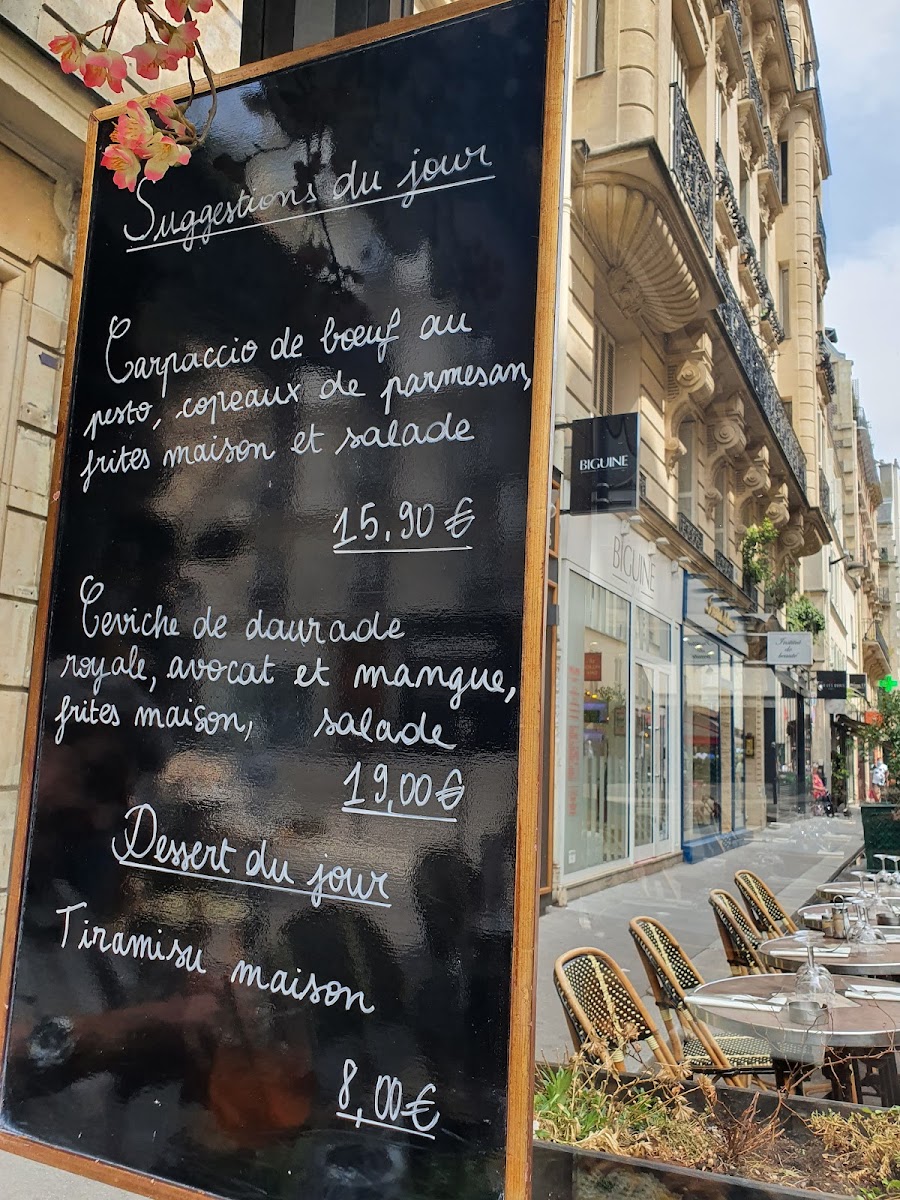 Suggestions du jour
Carpaccio de bœuf au
pesto, copeaux de parmesan,
frites maison et salade
15,90 €
Ceviche de daurade
royale, avocat et mangue,
frites maison, salade
19,00 €
Dessert du jour
Tiramisu maison
8,00 €
BIGUINE
BIGUINE
Institut
de
beauté